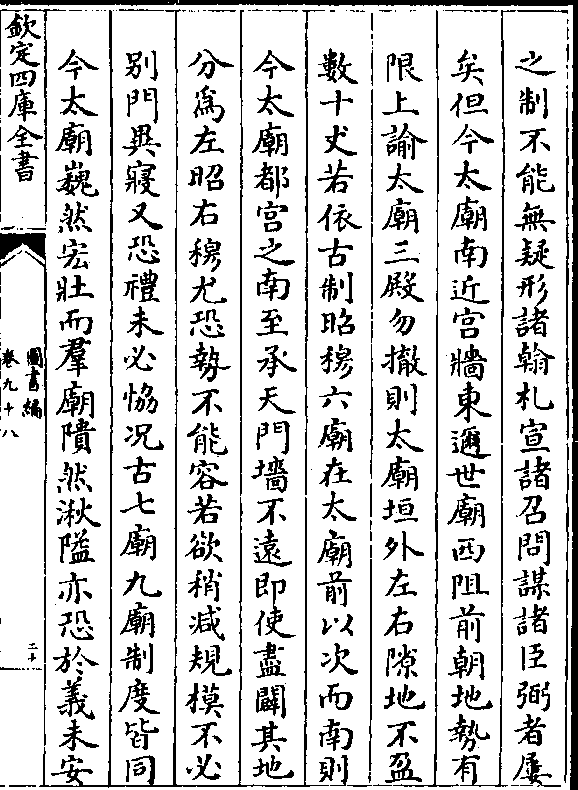 之制不能無疑形諸翰札宣諸召問謀諸臣弼者屢
矣但今太廟南近宫牆東邇世廟西阻前朝地勢有
限上諭太廟三殿勿撤則太廟垣外左右隙地不盈
數十丈若依古制昭穆六廟在太廟前以次而南則
今太廟都宫之南至承天門墻不遠即使盡闢其地
分爲左昭右穆尤恐勢不能容若欲稍减規模不必
别門異寢又恐禮未必恊况古七廟九廟制度皆同
今太廟巍然宏壯而羣廟隤然湫隘亦恐於義未安
欽定四庫全書
圖書編
卷九十八
二十